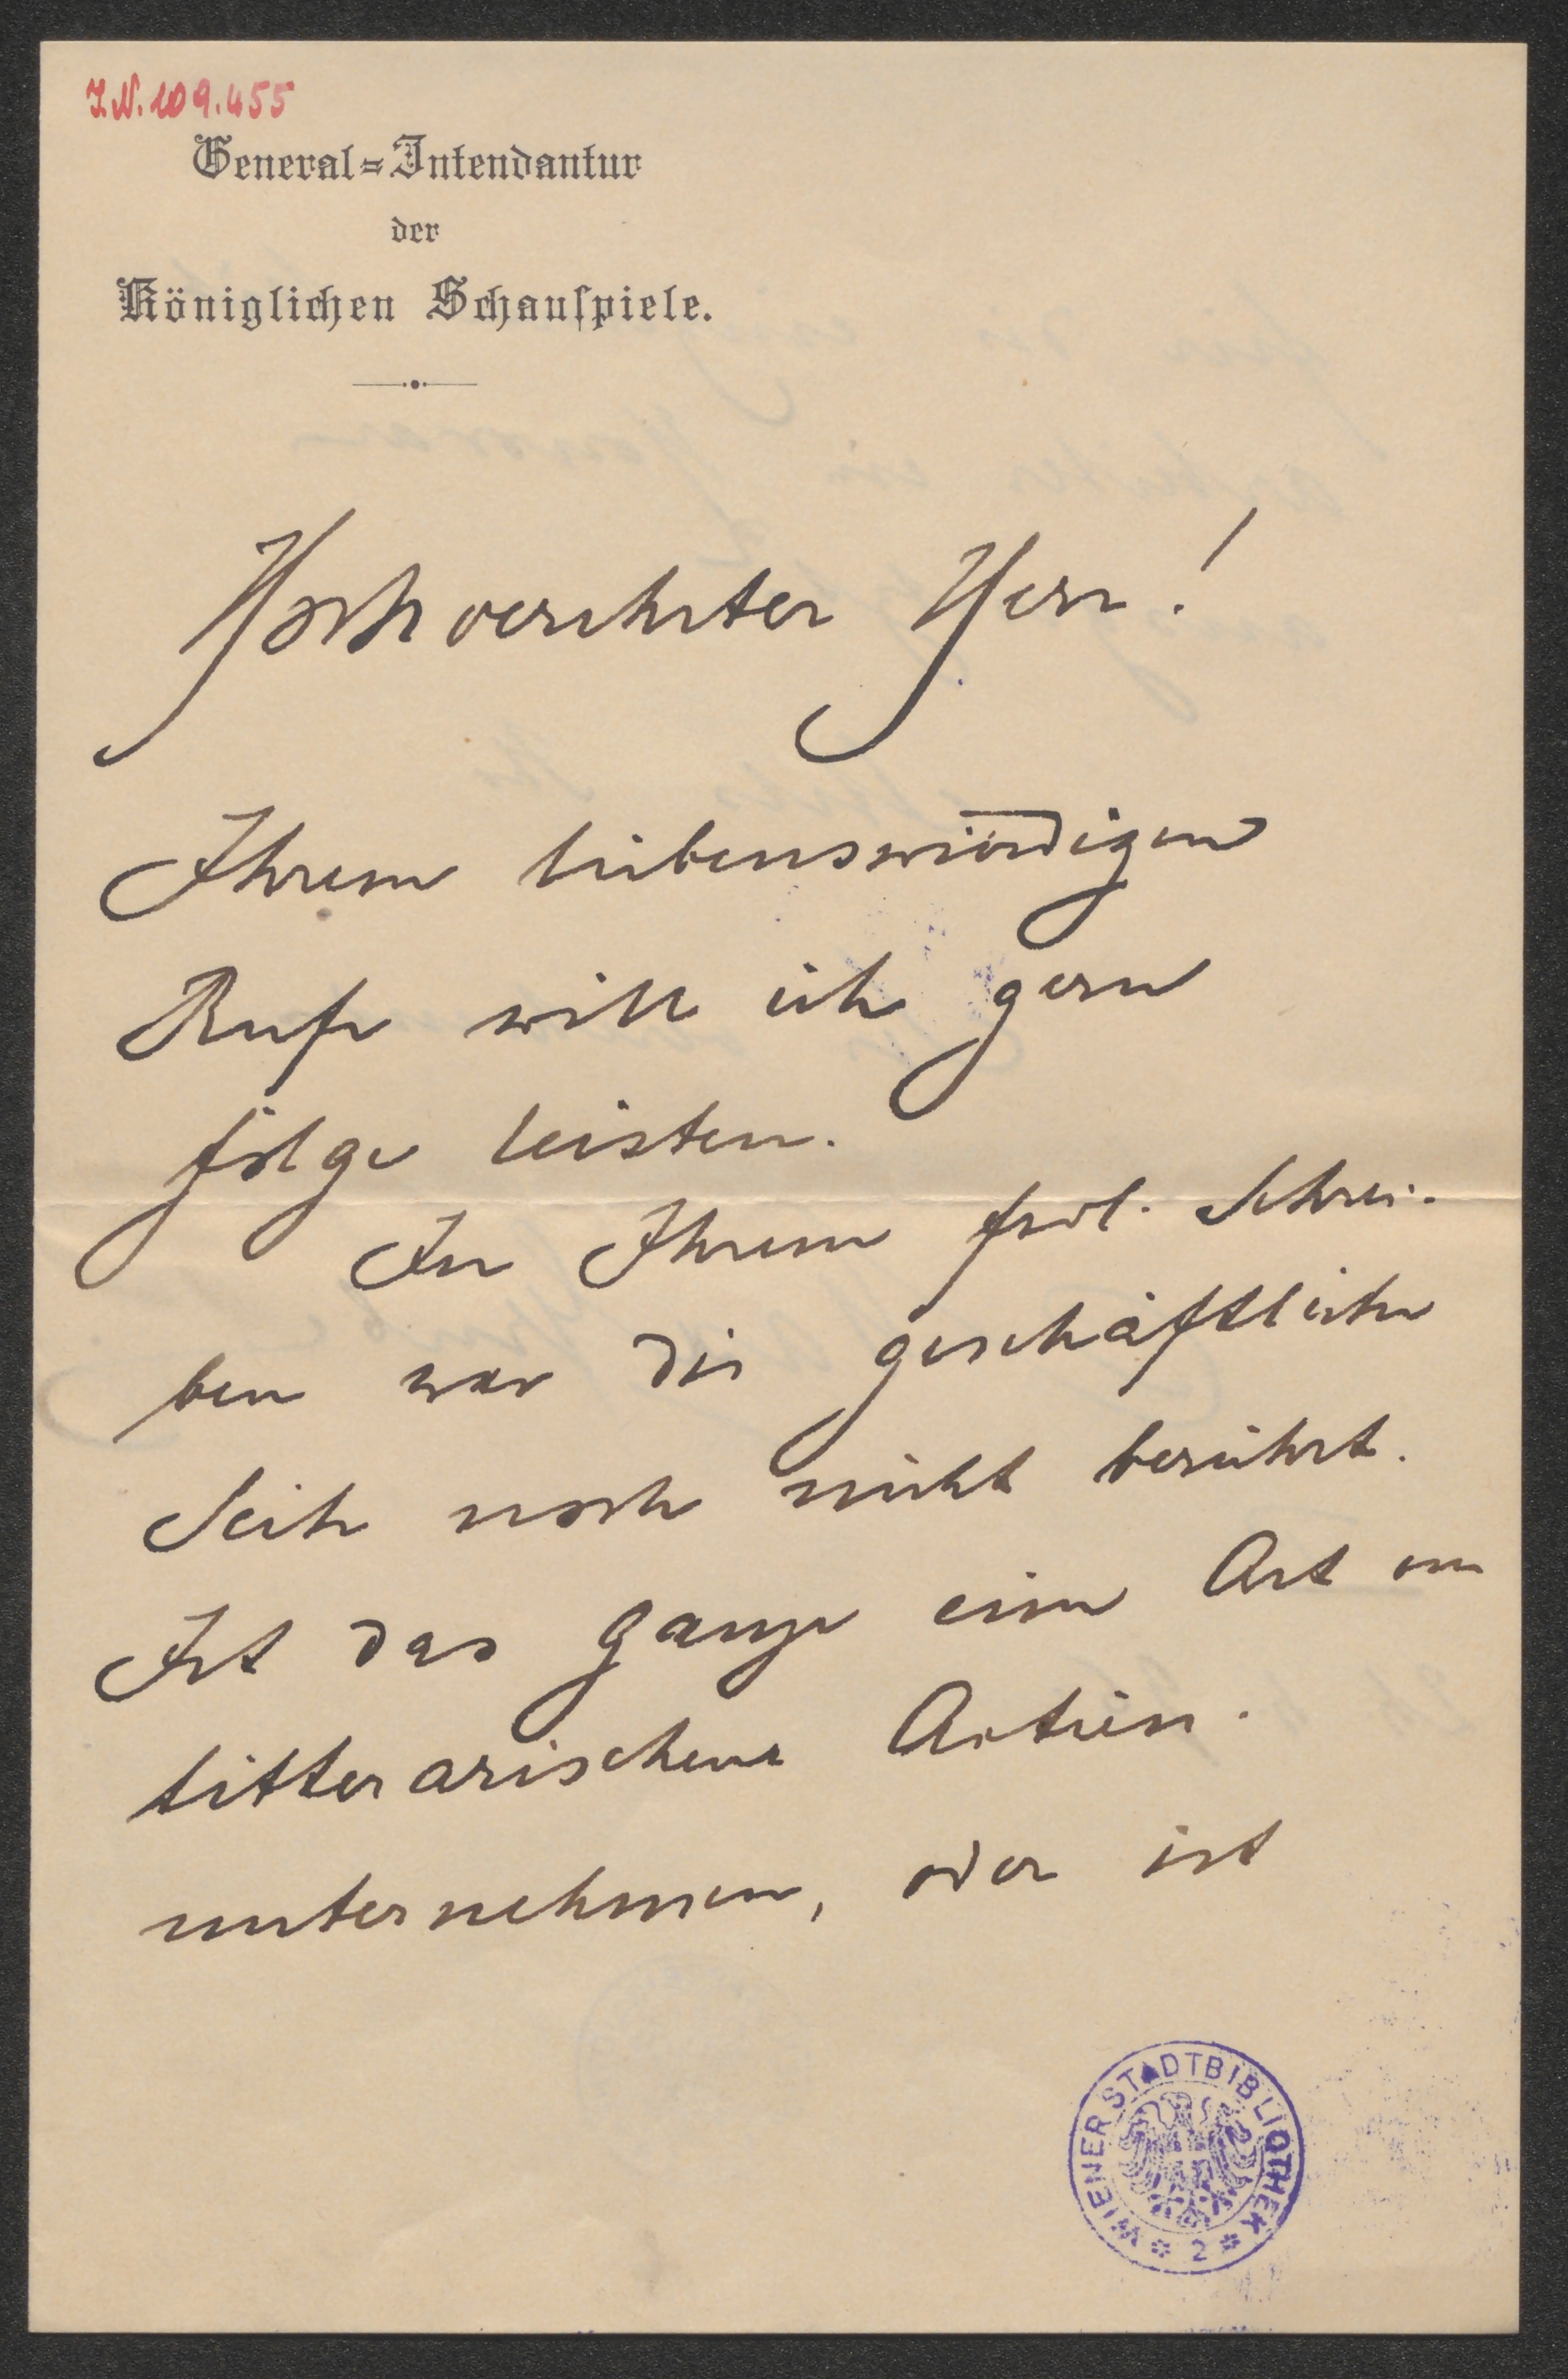 I.N. 109.455
General-Intendantur
der
Königlichen Schauspiele.
Hochverehrter Herr!
Ihrem liebenswürdigen
Rufe will ich gern
folge leisten.
In Ihrem frdl. Schrei-
ben war die geschäftliche
Seite noch nicht berührt.
Ist das ganze eine Art von
litterarischem Actien-
unternehmen, oder ist
WIENER STADTBIBLIOTHEK
2